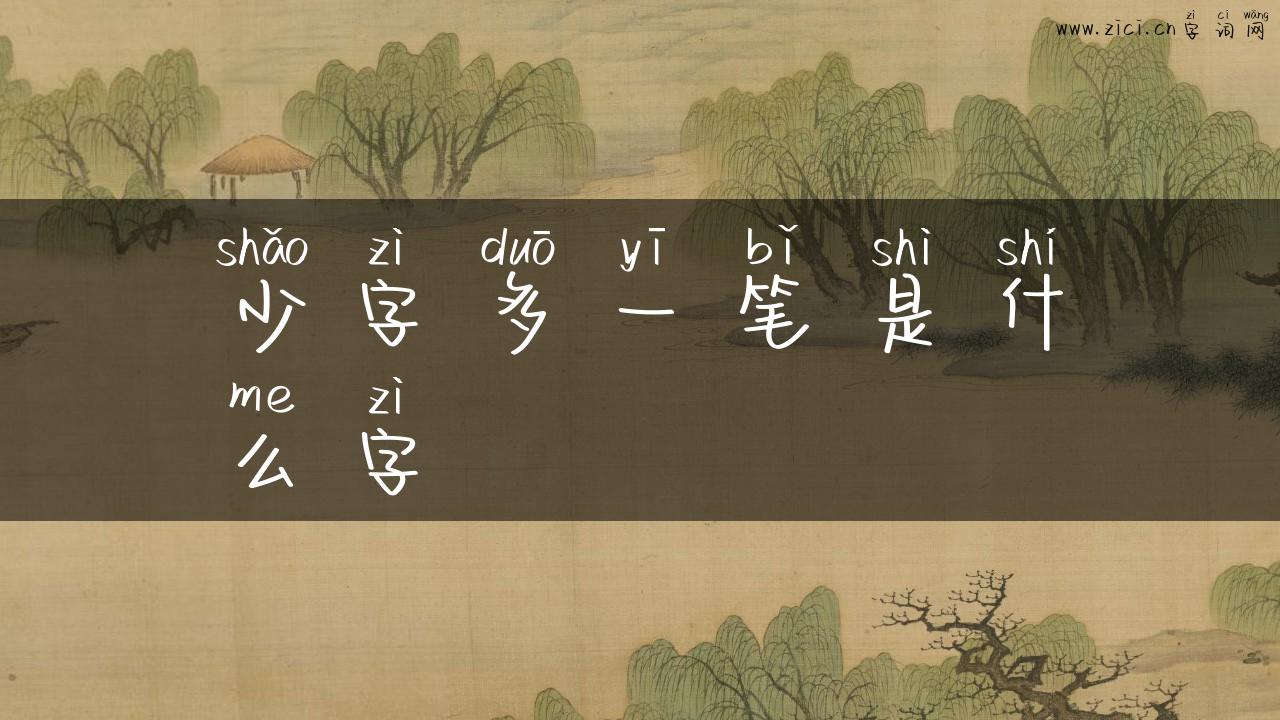 zì cí wǎng
www.zici.cn 字 词 网
shǎo zì duō yī bǐ shì shí
少 字 多 一 笔 是 什
me zì
么 字